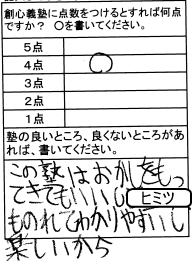 創心義塾に点数をつけるとすれば何点
ですか？ ○を書いてください。
5点
4点 ○
3点
2点
1点
塾の良いところ、良くないところがあ
れば、書いてください。
この塾はおかしをもっ
てきてもいいし ヒミツ
ものれてわかりやすいし
楽しいから